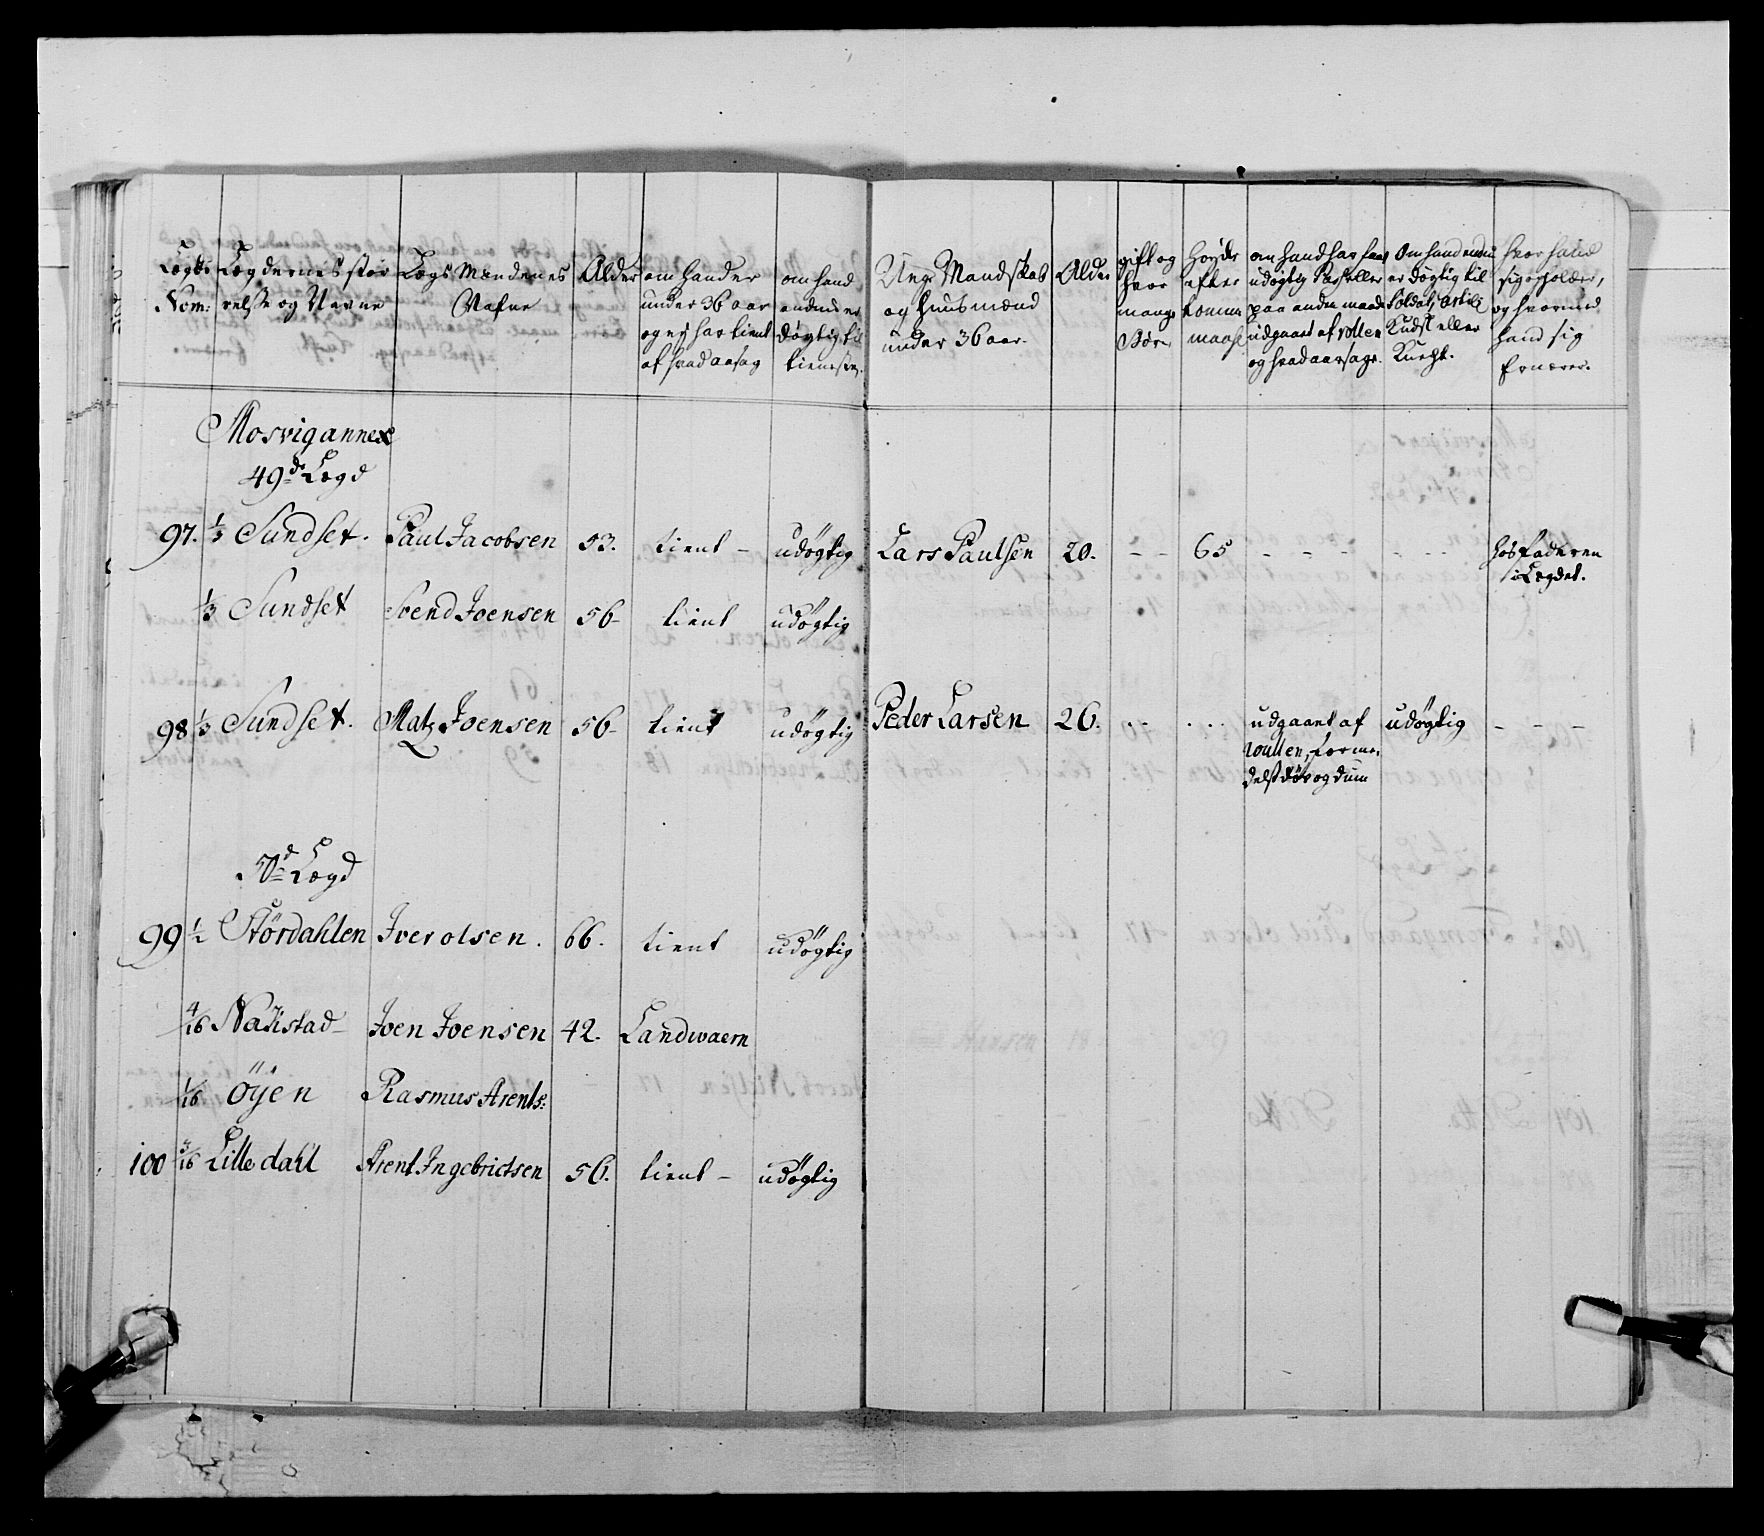 Lægds Nom:
Lægdernis stør relse og Navne
Lægs Mændenes Nafne
Alder
om hand er under 36 aar og ej har tient af hvad aarsag
om hand endnu er døgtig til tienesten
Ung Mandskab og huusmænd under 36 aar.
Alder
gift og hvor mange Børn
Høyde efter tomme maahl
om hand har faaet udøgtig Pas eller paa anden maade udgaaet af rollen og hvad aarsage.
Om hand endnu er døgtig til Soldat, Artill: Kudsk eller Knegt.
hvor hand sig opholder, og hvormed hand sig Ernærer.
Mosvig annex
49de Lægd
97. 1/3 Sundset. Paul Jacobsen 53. tient - udøgtig Lars Paulsen 20. - - 65 - - - - - hos faderen i Lægdet.
1/3 Sundset Svend Joensen 56 - tient udøgtig
98 1/3 Sundset. Matz Joensen 56 - tient udøgtig Peder Larsen 26. - - - - - udgaaet af roullen, forme- delst døv og dum udøgtig - - -
50de Lægd
99 1/2 Størdahlen Iver olsen. 66. tient udøgtig
4/16 Nakstad - Joen Joensen 42. Landwaern
1/16 Öyen Rasmus Arents:
100 3/16 Lille dahl Arent Ingebrictsen 56. tient - udøgtig